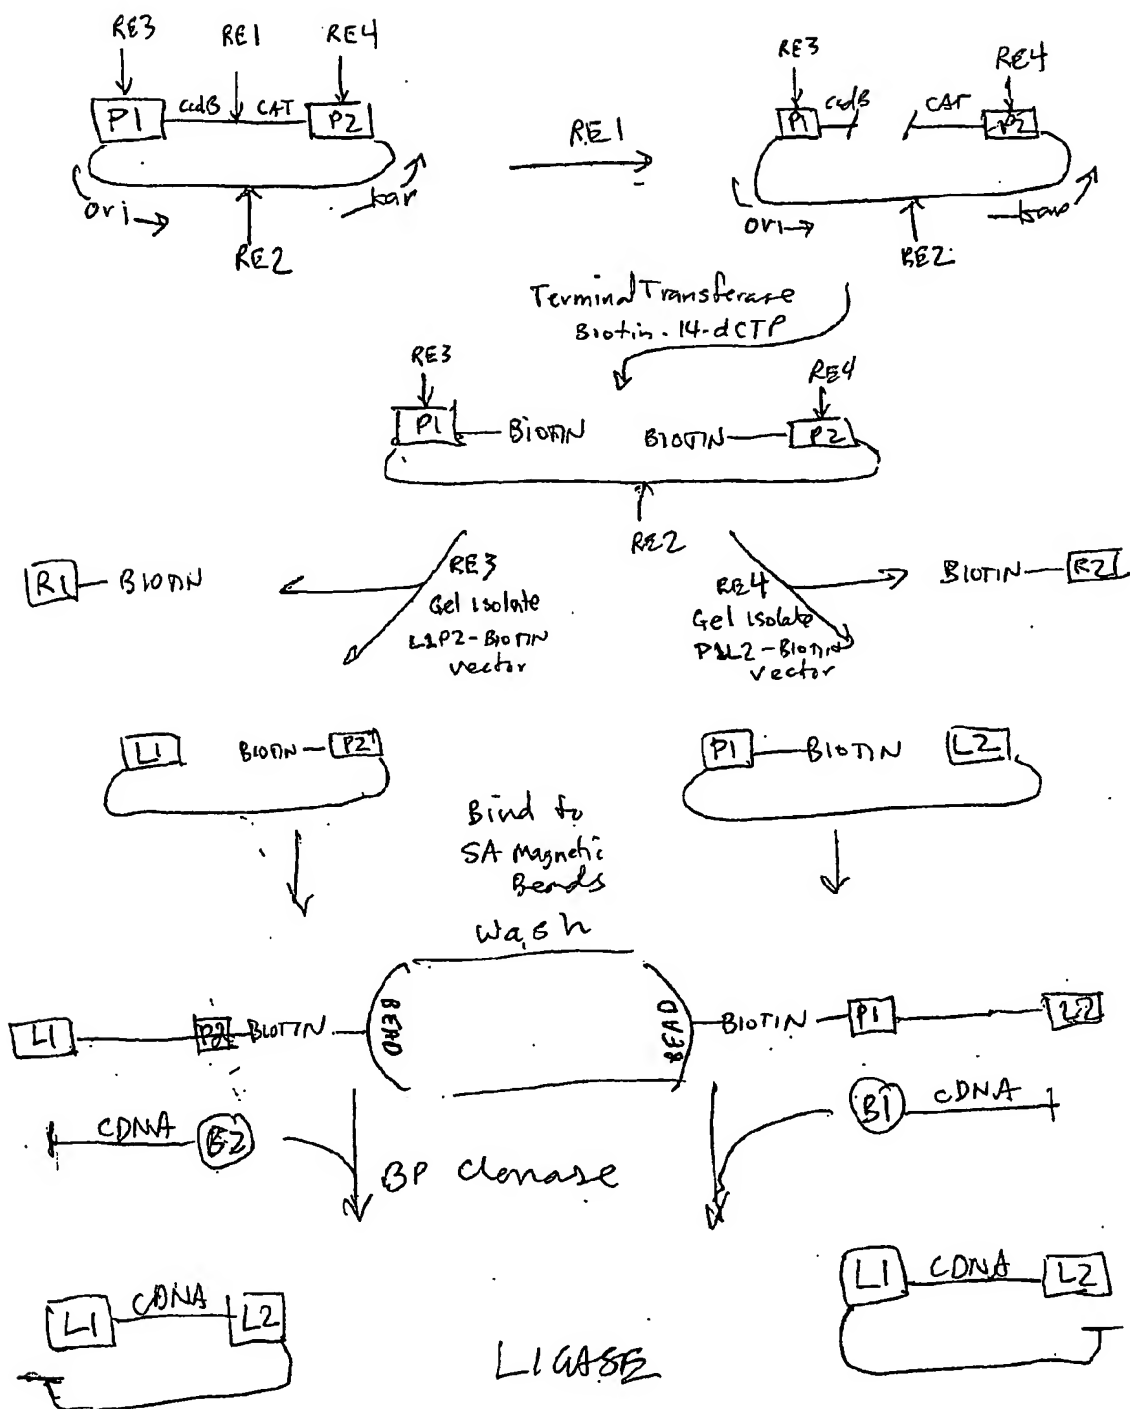 RE3 RE1 RE4
P1 ccdB CAT P2
ori kar
RE2
RE1
RE3 RE4
P1 ccdB CAT P2
ori kar
RE2
Terminal Transferase
Biotin-14-dCTP
RE3 RE4
P1 BIOTIN BIOTIN P2
RE2
R1 BIOTIN
RE3
Gel Isolate
L1P2-BIOTIN
vector
RE4
Gel Isolate
P1L2-BIOTIN
vector
BIOTIN R2
L1 BIOTIN P2
P1 BIOTIN L2
Bind to
SA Magnetic
Beads
Wash
L1 P2 BIOTIN BEAD
BEAD BIOTIN P1 L2
CDNA B2
B1 CDNA
BP Clonase
L1 CDNA L2
L1 CDNA L2
LIGASE